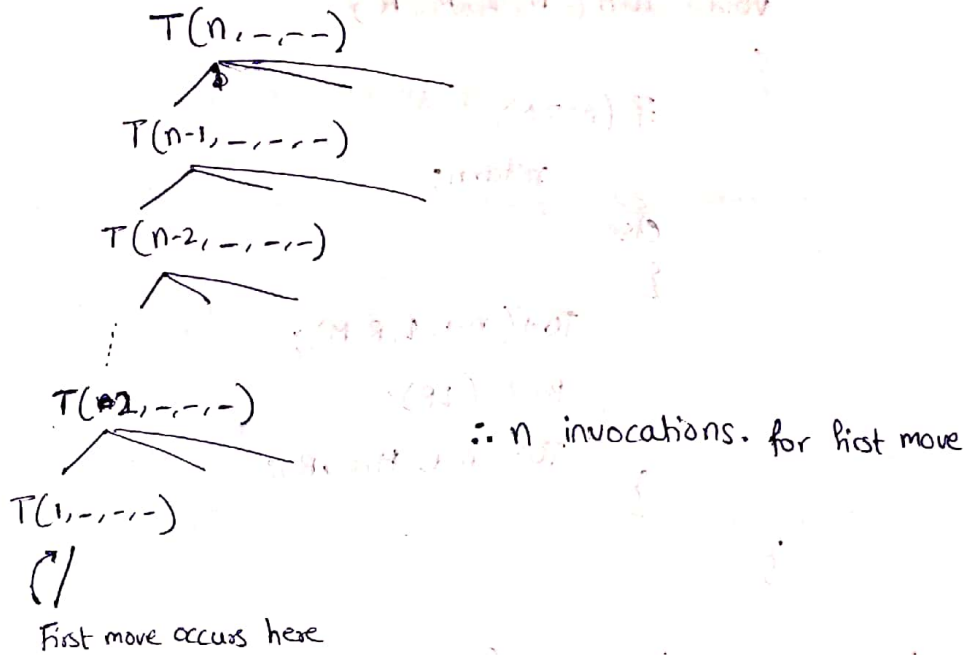 T(n,-,--)
T(n-1,-,-,-)
T(n-2,-,-,-)
T(2,-,-,-)
∴ n invocations. for first move
T(1,-,-,-)
First move occurs here